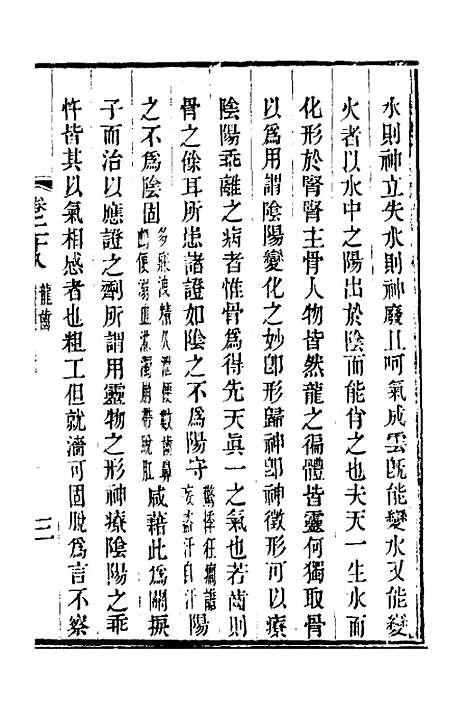 水則神立失水則神廢且呵氣成雲旣能變水又能變
火者以水中之陽出於陰而能肖之也夫天一生水而
化形於腎腎主骨人物皆然龍之徧體皆靈何獨取骨
以爲用謂陰陽變化之妙卽形歸神卽神徵形可以療
陰陽乖離之病者惟骨爲得先天眞一之氣也若齒則
骨之餘耳所患諸證如陰之不爲陽守驚悸狂癇譫妄盜汗自汗陽
之不爲陰固多寐洩精久泄便數齒鼻便溺血淋濁崩帶脫肛咸藉此爲關捩
子而治以應證之劑所謂用靈物之形神療陰陽之乖
忤皆其以氣相感者也粗工但就濇可固脫爲言不察
卷二十八 龍齒 三